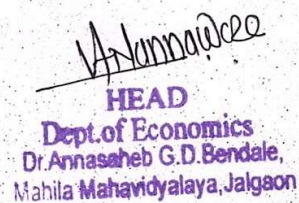 HEAD
Dept.of Economics
Dr.Annasaheb G.D.Bendale,
Mahila Mahavidyalaya,Jalgaon